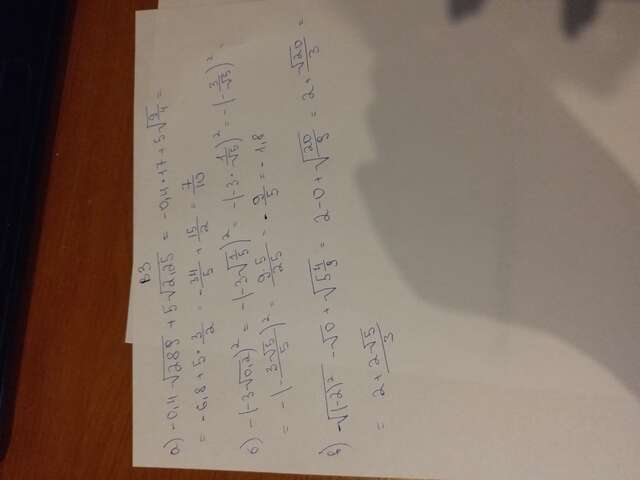 в3
а) -0,4·√289 + 5√2,25 = -0,4·17 + 5√9/4 =
= -6,8 + 5·3/2 = -34/5 + 15/2 = 7/10
б) -(-3√0,2)² = -(-3√1/5)² = -(-3·1/√5)² = -(-3/√5)² =
= -(-3√5/5)² = 9·5/25 = -9/5 = -1,8
в) √(-2)² - √0 + √5 4/9 = 2-0+√20/9 = 2+√20/3 =
= 2+2√5/3